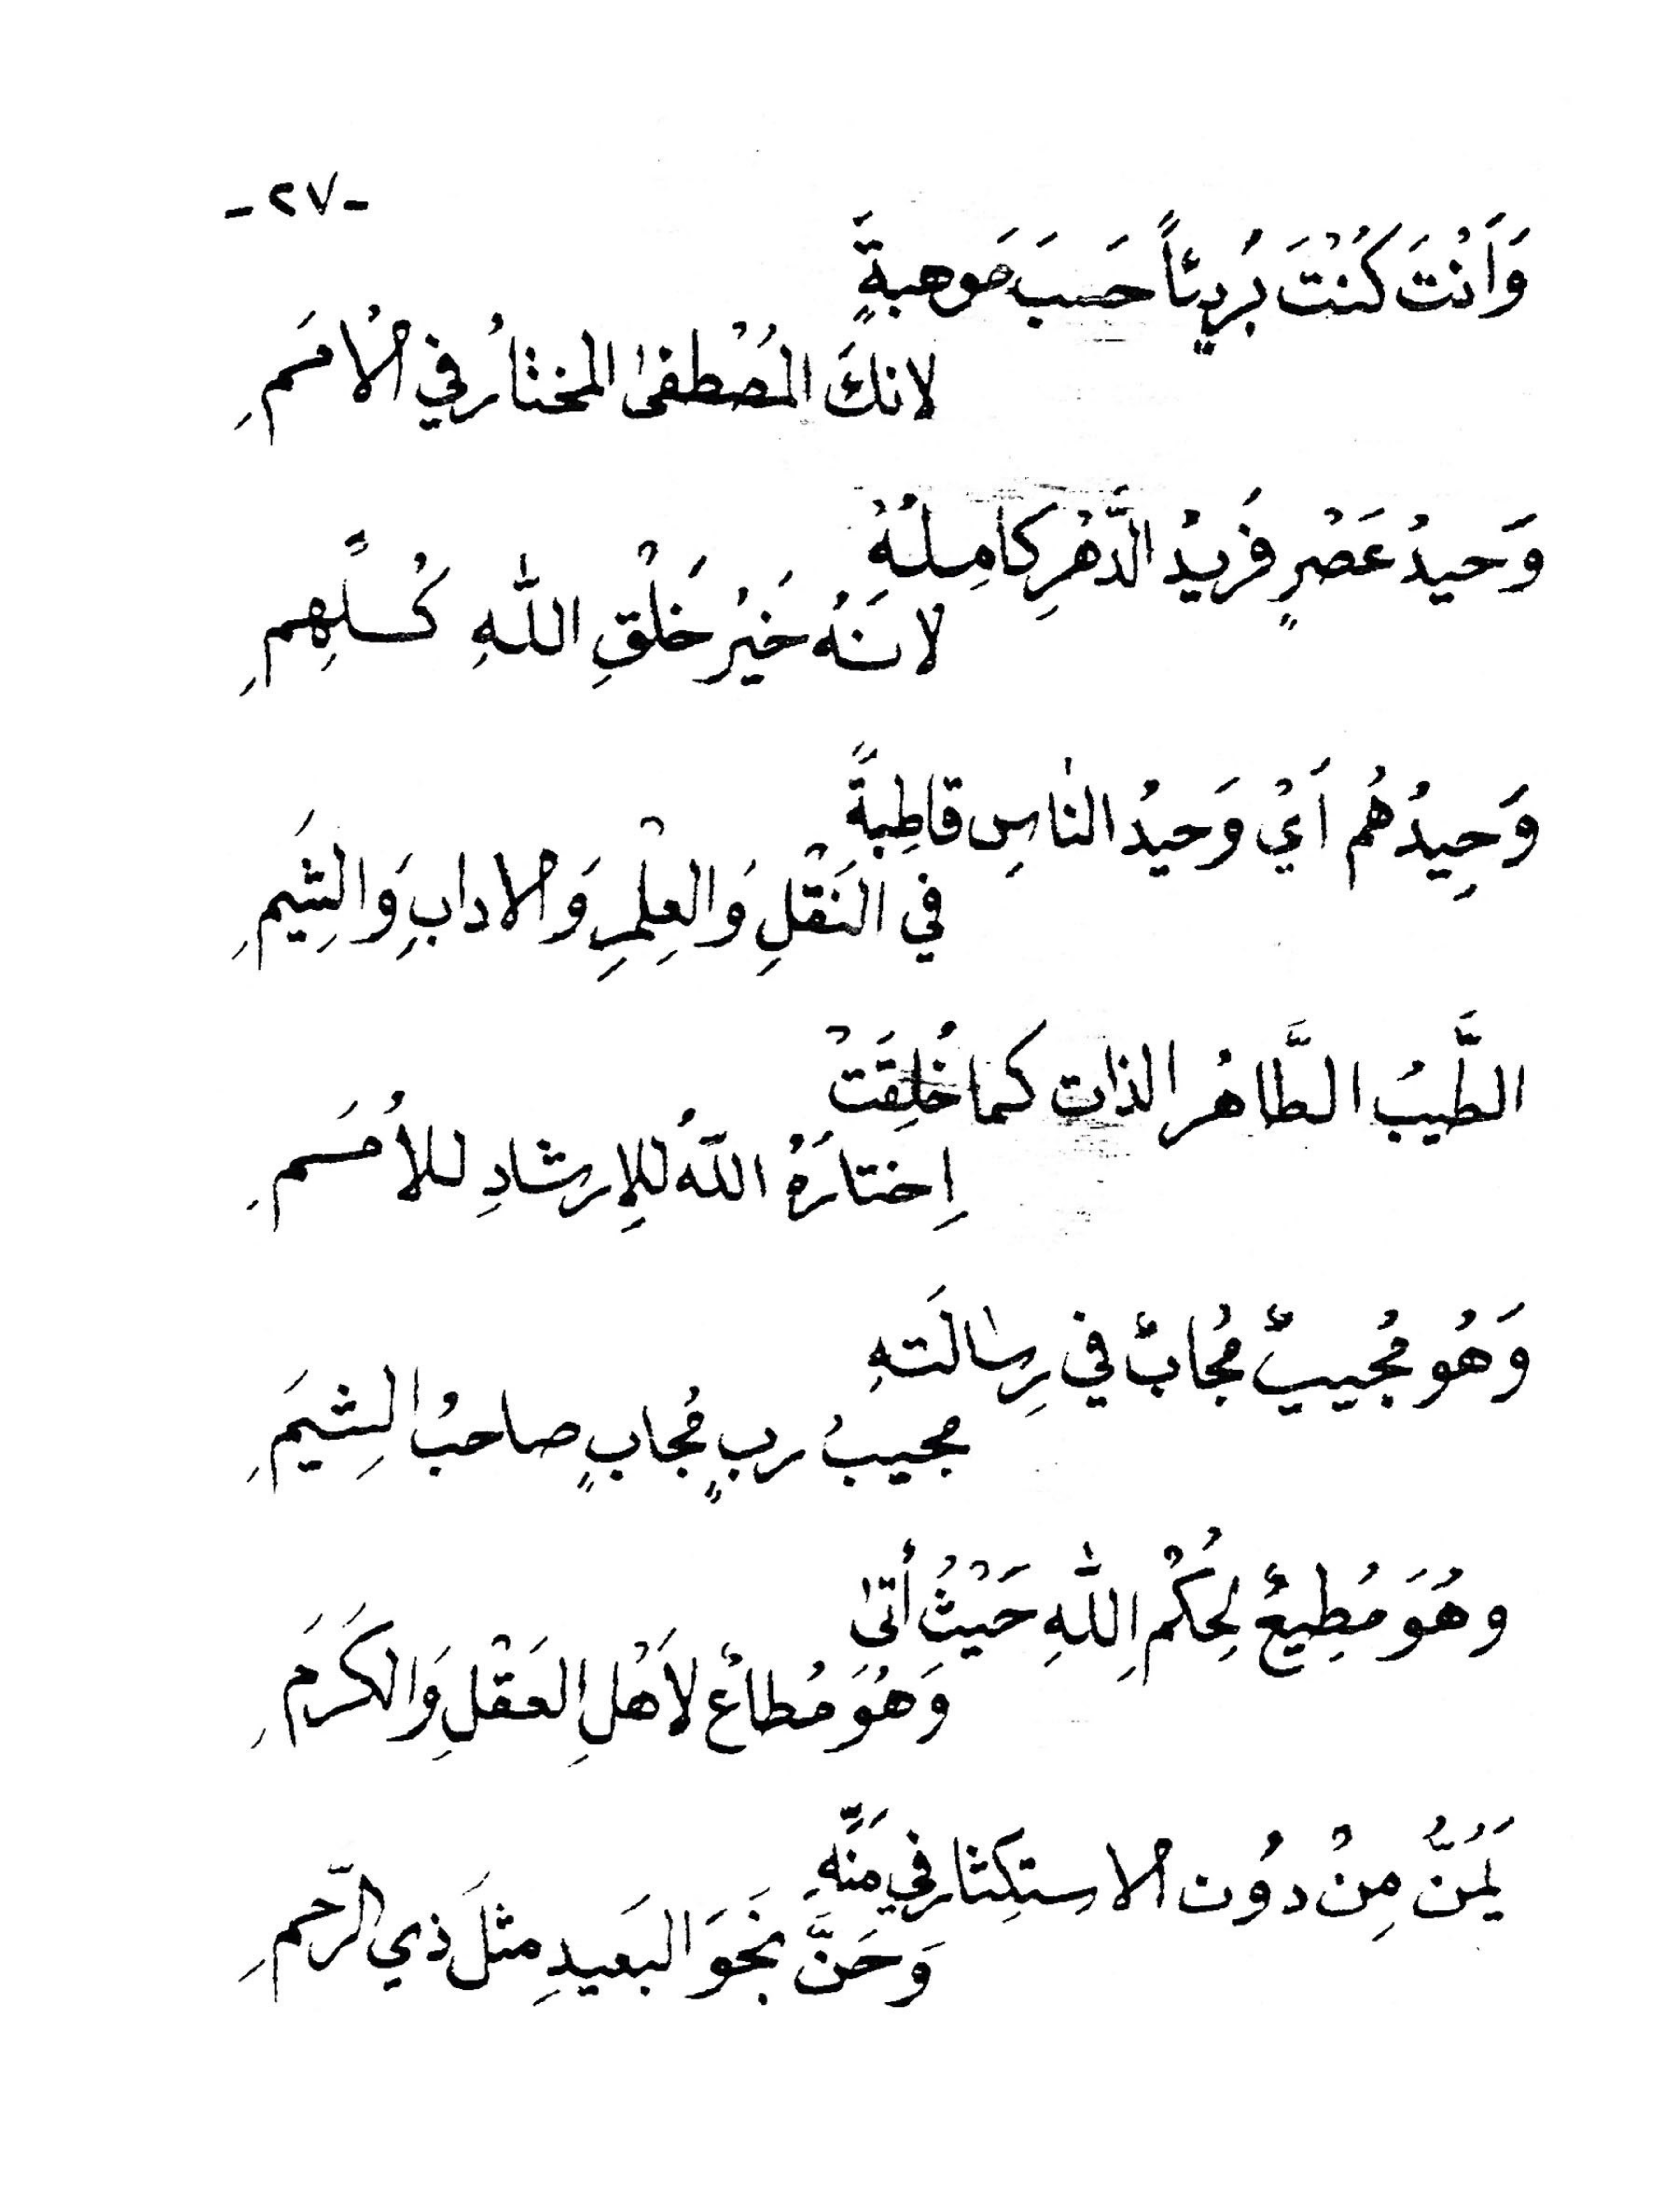 -٢٧-
وَاَنْتَ كُنْتَ بَرِيئاً حَسَبَ مَوهبةٍ
لانكَ المُصْطفىٰ المختارُ في الْاُمَمِ
وَحيدُ عَصْرٍ فَريدُ الدَّهْرِ كامِلُهُ
لانَهُ خَيْرُ خَلْقِ اللّٰهِ كُلِّهِمِ
وَحِيدُهُم اَيْ وَحيدُ الناسِ قاطِبةً
في النَقْلِ وَالعِلْمِ وَالادابِ وَالشِيَمِ
الطَّيبُ الطَّاهرُ الذات كما خُلِقَتْ
اِختارَهُ اللّهُ لِلاِرشادِ للاُمَمِ
وَهُو مُجيبٌ مُجابٌ في رِسٰالَتهِ
مجيبُ ربٍ مُجابٍ صاحبُ الشِيَمِ
وهُوَ مُطِيعٌ لِحُكْمِ اللّٰهِ حَيْثُ أتىٰ
وَهُوَ مُطاعٌ لاَهْلِ العَقْلِ وَالكَرَمِ
يَمُنُّ مِنْ دوُن الاستِكِثار في مَنِّهِ
وَحَنَّ نَحوَ البَعيدِ مثلَ ذي الرّحمِ